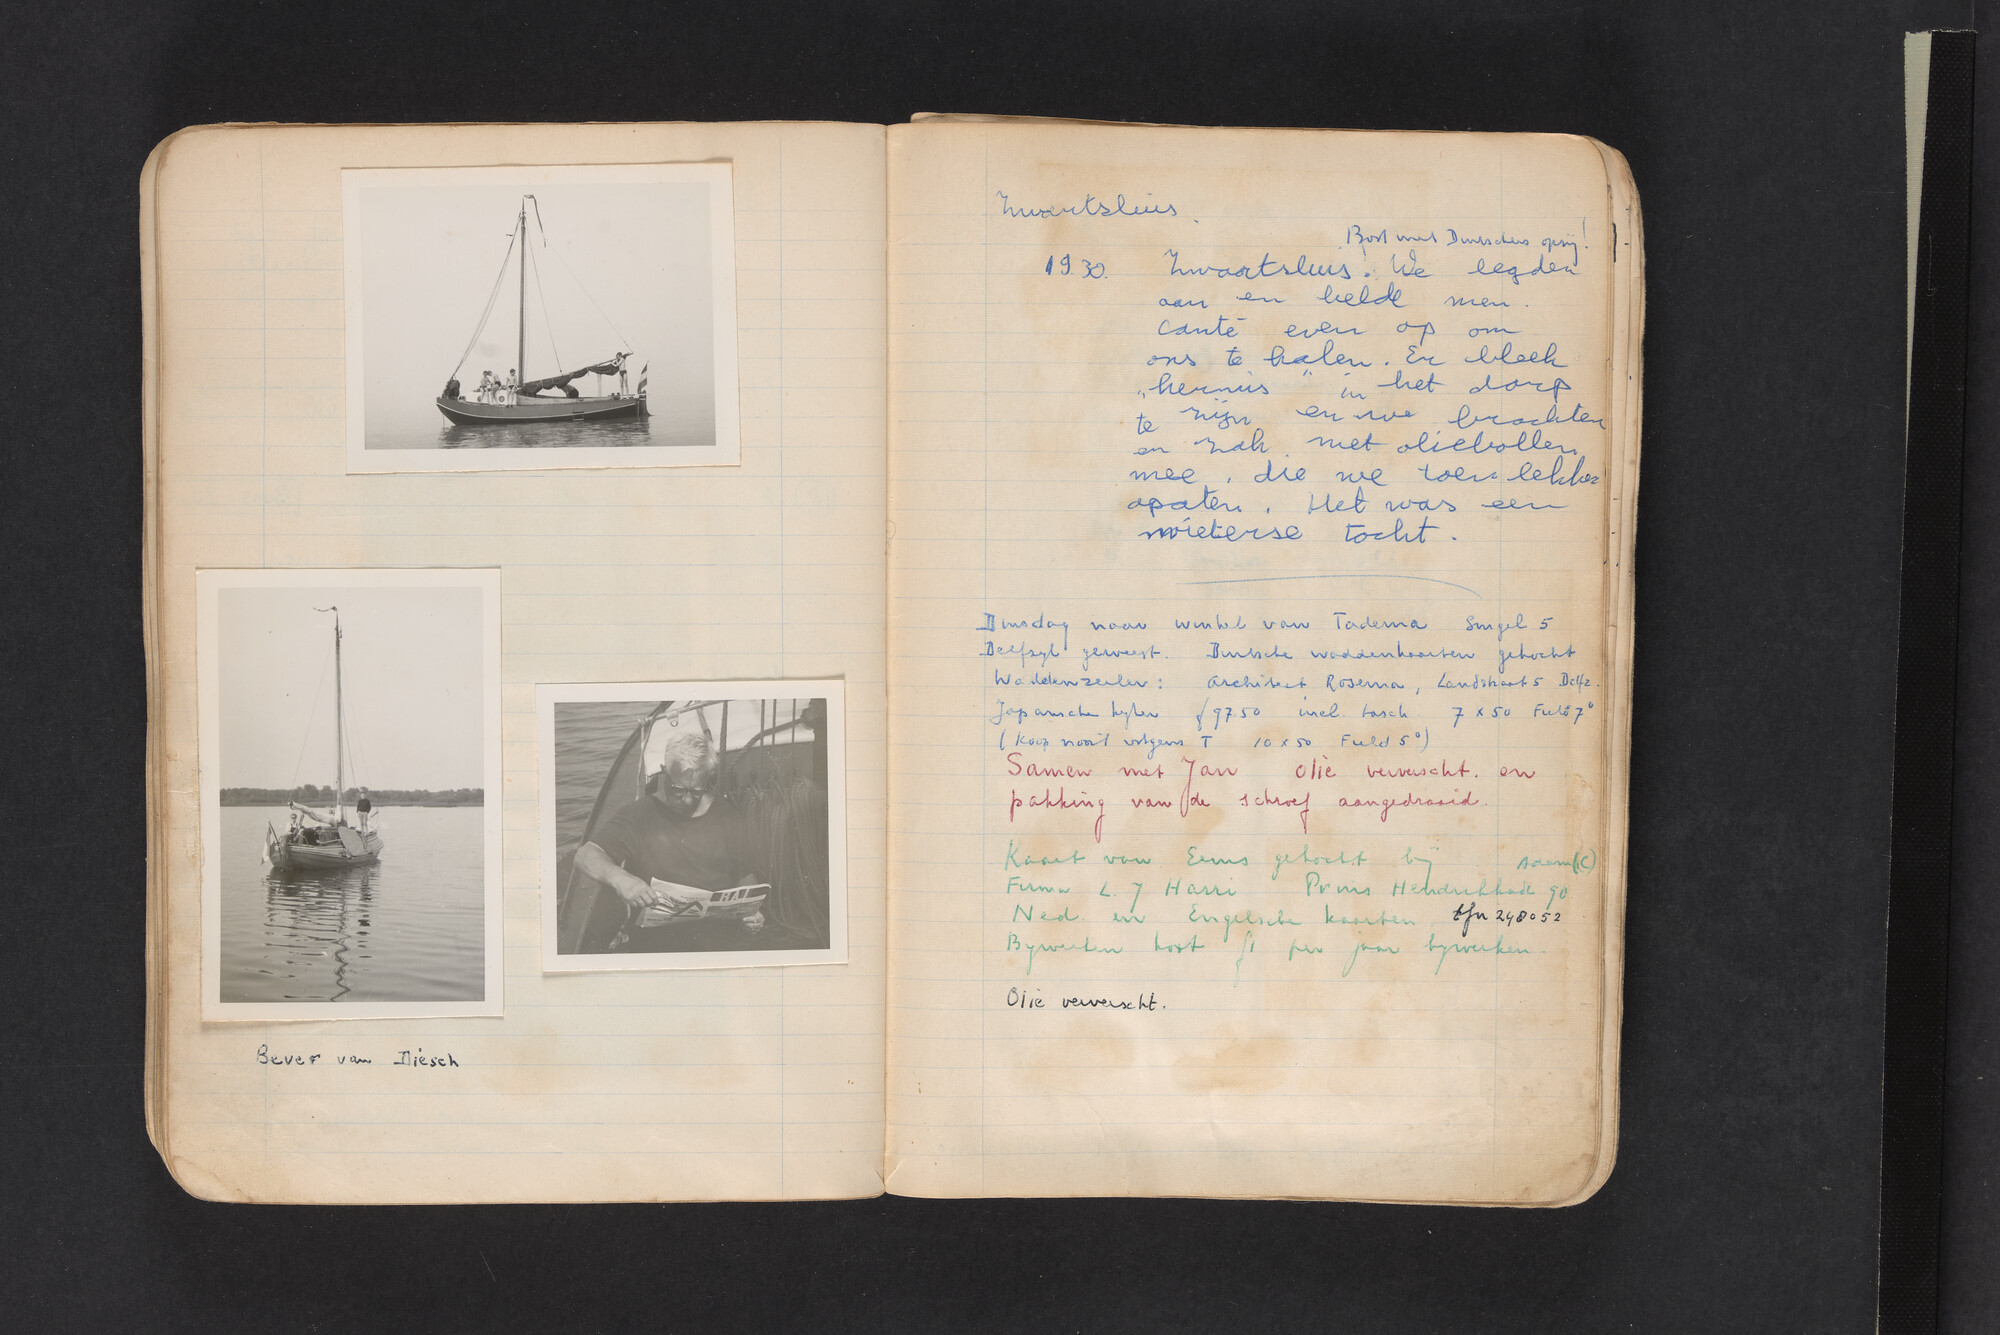 Bever van Diesch
Zwartsluis.
Boot met Duitschers opzij!
19.30. Zwartsluis! We legden
aan en belde men.
Canté even op om
ons te halen. Er bleek
„kermis" in het dorp
te zijn en we brachten
en zak met oliebollen
mee, die we toen lekker
opaten. Het was een
mieterse tocht.
Dinsdag naar winkel van Tadema Singel 5
Delfzyl geweest. Duitsche waddenkaarten gekocht
Waddenzeiler: architect Rosema, Landstraat 5 Delfz.
Japansche kyker f 97.50 incl. tasch 7 x 50 Field 7°
(Koop nooit volgens T 10 x 50 Field 5°)
Samen met Jan Olie ververscht. en
pakking van de schroef aangedraaid.
Kaart van Eems gekocht bij Adam (C)
Firma L. J Harri Prins Hendrikkade 90
Ned. en Engelsche kaarten. tfn 248052
Bijwerken kost f1 per jaar bijwerken.
Olie ververscht.